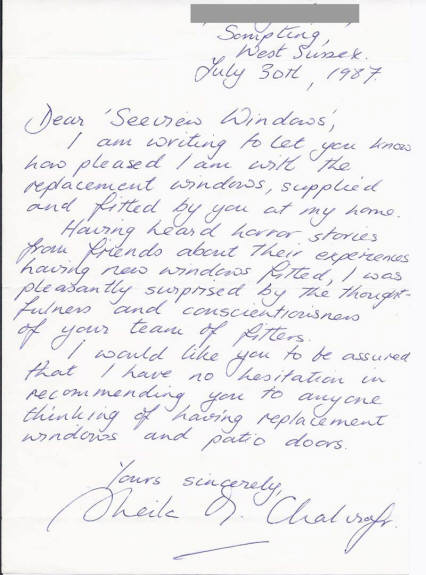 Sompting,
West Sussex.
July 30th, 1987.
Dear 'Seeview Windows',
I am writing to let you know
how pleased I am with the
replacement windows, supplied
and fitted by you at my home.
Having heard horror stories
from friends about their experiences
having new windows fitted, I was
pleasantly surprised by the thought-
fulness and conscientiousness
of your team of fitters.
I would like you to be assured
that I have no hesitation in
recommending you to anyone
thinking of having replacement
windows and patio doors.
Yours sincerely,
Sheila